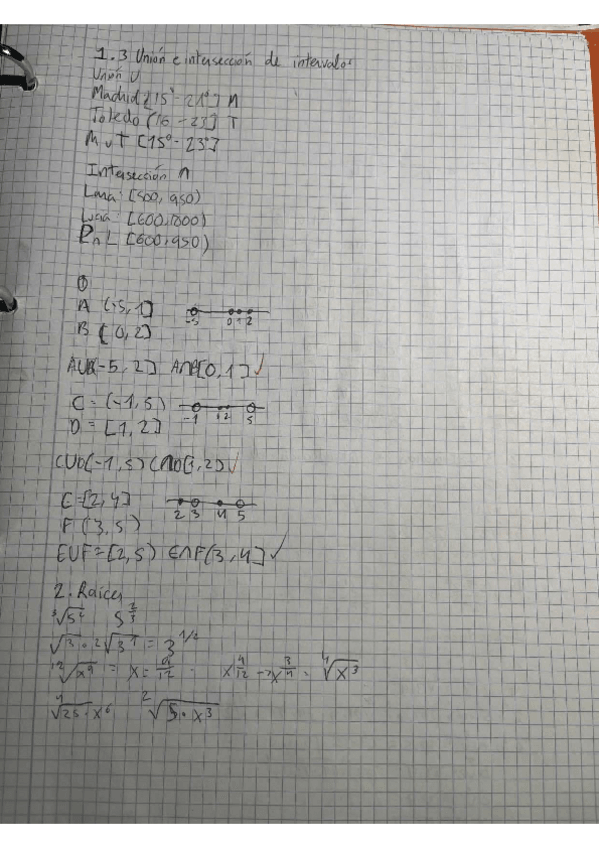 1.3 Unión e intersección de intervalos
Unión U
Madrid [15° - 21°] M
Toledo (16 - 23] T
M ∪ T [15° - 23°]
Intersección ∩
[500, 950)
[600, 1000)
∩ L [600, 950)
①
A (-5, 1]
-5 0 1 2
B [0, 2]
AUB(-5, 2] A∩B[0, 1] ✓
C = (-1, 5)
-1 1 2 5
D = [1, 2]
CUD(-1, 5) C∩D[1, 2] ✓
E = [2, 4]
2 3 4 5
F (3, 5)
EUF = [2, 5) E∩F(3, 4] ✓
2. Raíces
∛5² 5^(2/3)
√3 = ²√3¹ = 3^(1/2)
¹²√x⁹ = x = 9/12 x^(9/12) → x^(3/4) = ⁴√x³
⁴√25·x⁶ ²√5·x³